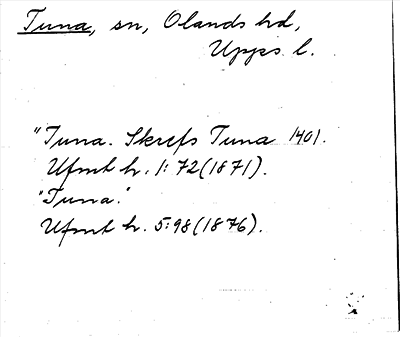 Tuna, sn, Olands hd,
Upps. l.
"Tuna. Skrefs Tuna 1401.
Ufmt h. 1: 72 (1871).
"Tuna."
Ufmt h. 5: 98 (1876).